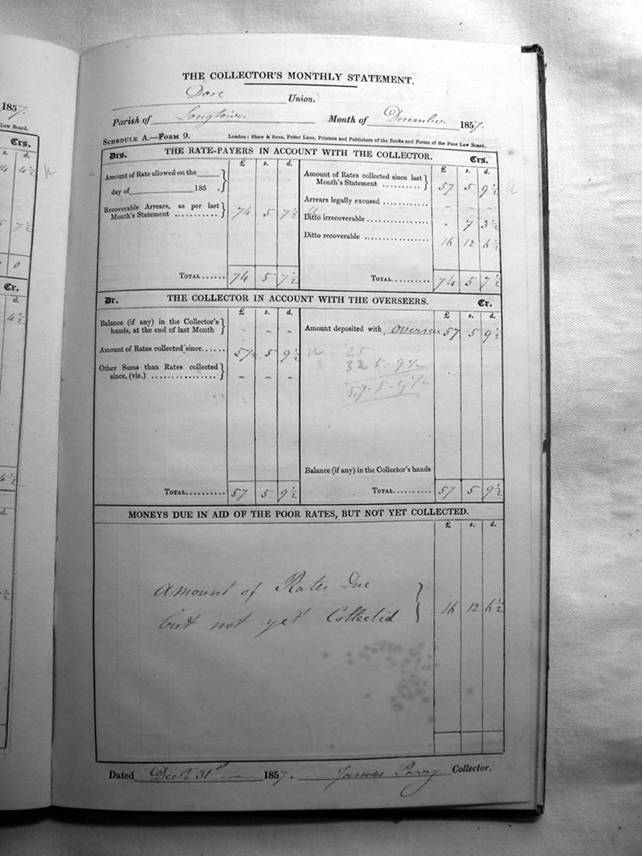 THE COLLECTOR'S MONTHLY STATEMENT.
Dore Union.
Parish of Longtown Month of December 1857.
SCHEDULE A.—FORM 9. London: Shaw & Sons, Fetter Lane, Printers and Publishers of the Books and Forms of the Poor Law Board.
Drs. THE RATE-PAYERS IN ACCOUNT WITH THE COLLECTOR. Crs.
£ s. d. £ s. d.
Amount of Rate allowed on the
day of 185
Recoverable Arrears, as per last
Month's Statement 74 5 7½
TOTAL 74 5 7½
Amount of Rates collected since last
Month's Statement 57 5 9½
Arrears legally excused - - -
Ditto irrecoverable - 7 3½
Ditto recoverable 16 12 6½
TOTAL 74 5 7½
Dr. THE COLLECTOR IN ACCOUNT WITH THE OVERSEERS. Cr.
£ s. d. £ s. d.
Balance (if any) in the Collector's
hands, at the end of last Month - - -
Amount of Rates collected since 57 5 9½
Other Sums than Rates collected
since, (viz.) - - -
TOTAL 57 5 9½
Amount deposited with overseers 57 5 9½
25
32 5 9½
57.5.9½
Balance (if any) in the Collector's hands
TOTAL 57 5 9½
MONEYS DUE IN AID OF THE POOR RATES, BUT NOT YET COLLECTED.
£ s. d.
Amount of Rates Due
but not yet Collected 16 12 6½
Dated Decr 31st 1857. James Parry Collector.
1857.
Law Board.
Crs.
s. d.
Cr.
d.